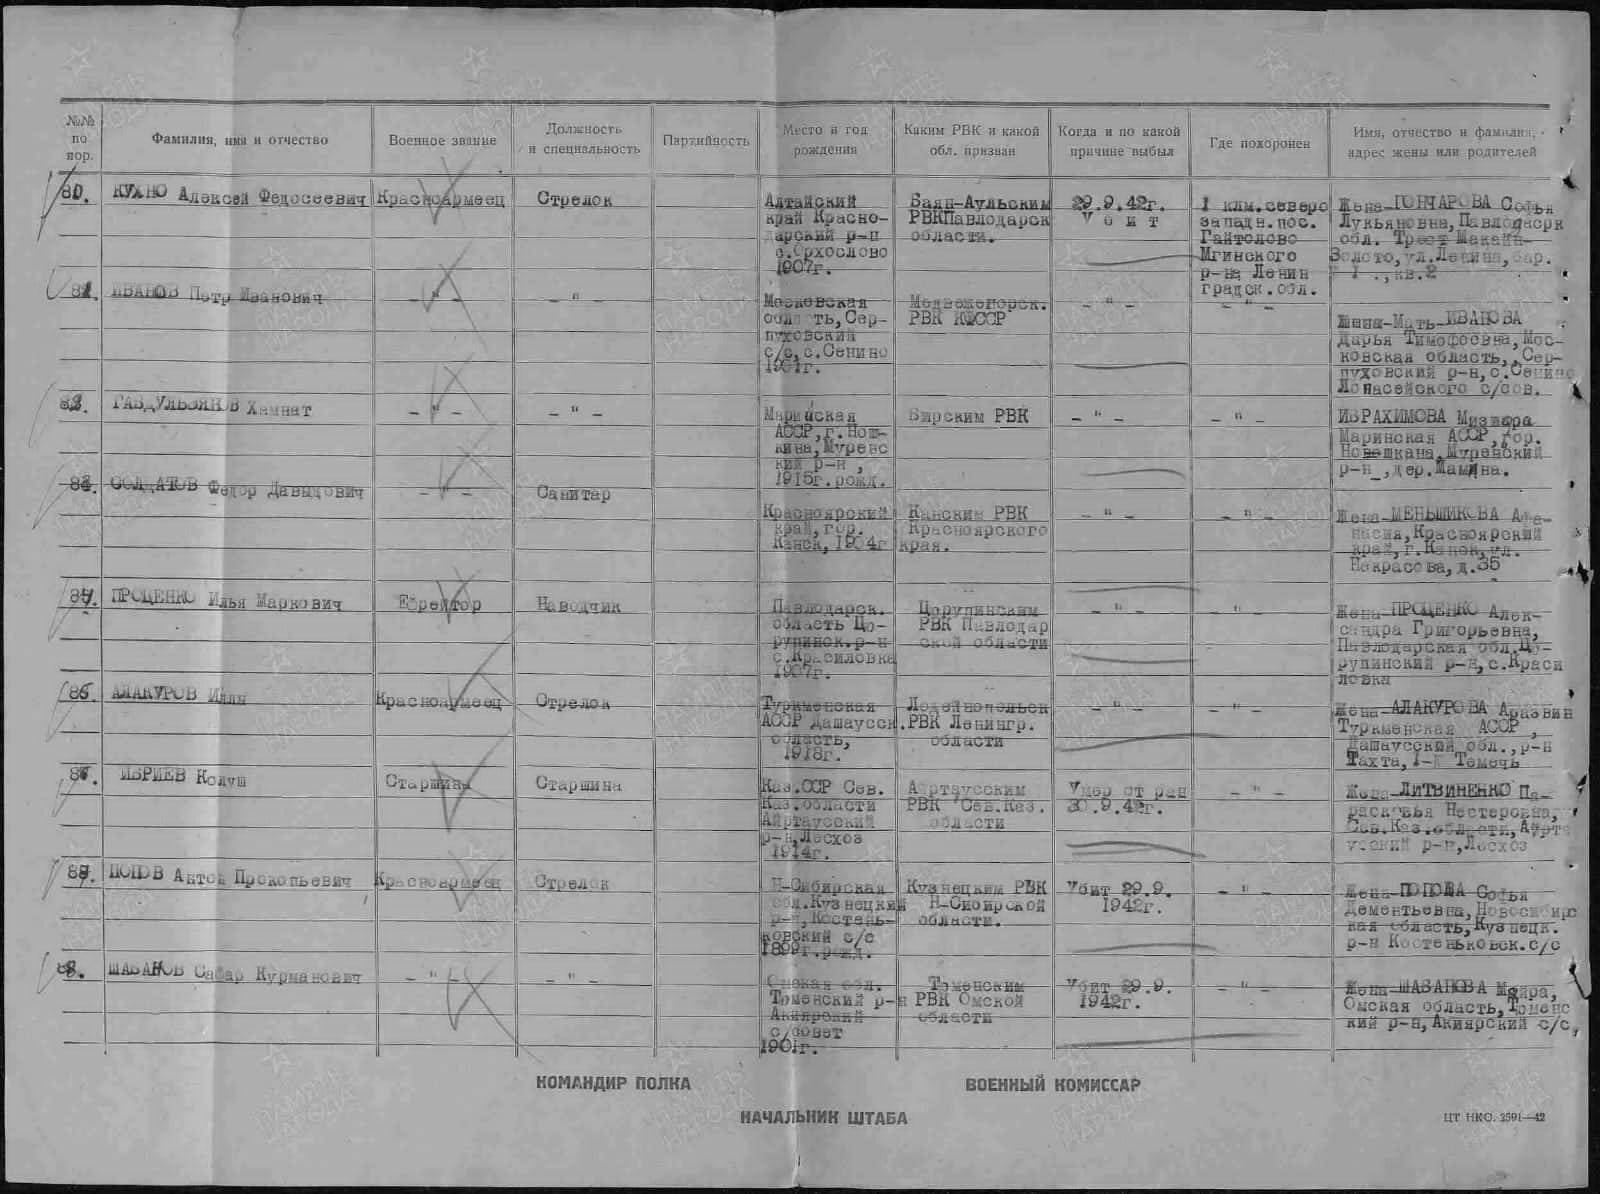 №№ по пор.
Фамилия, имя и отчество
Военное звание
Должность и специальность
Партийность
Место и год рождения
Каким РВК и какой обл. призван
Когда и по какой причине выбыл
Где похоронен
Имя, отчество и фамилия, адрес жены или родителей
80. КУХНО Алексей Федосеевич
Красноармеец
Стрелок
Алтайский
край Красно-
дарский р-н
с.Орхослово
1907г.
Баян-Аульским
РВКПавлодарск
области.
29.9.42г.
У б и т
1 клм.северо
западн.пос.
Гайтолово
Мгинского
р-на Ленин
градск.обл.
Жена-ГОНЧАРОВА Софья
Лукьяновна,Павлодасрк
обл. Трест Макаин-
Золото,ул.Ленина,бар.
1 .,кв.2
ИВАНОВ Петр Иванович
- " -
- "
Московская
область,Сер-
пуховский
с/с,с.Сенино
1901г.
Медвежегорск.
РВК КФССР
- " -
- " -
Мать-ИВАНОВА
Дарья Тимофеевна,Мос-
ковская область,,Сер-
пуховский р-н,с.Сенино
Лопасейского с/сов.
ГАБДУЛЬЗЯНОВ Хамнат
- " -
- " -
Марийская
АССР,г.Нош-
кина,Муревс
кий р-н ,
1915г.рожд.
Бирским РВК
- " -
- "
ИБРАХИМОВА
Маринская АССР,гор.
Новешкана,Муренский
р-н_,дер.Мамина.
СОЛДАТОВ Федор Давыдович
- " -
Санитар
Красноярский
край,гор.
Канск,1904г
Канским РВК
Красноярского
края.
- " -
- " -
Жена-МЕНЬШИКОВА Афа-
насия,Красноярский
край,г.Канск,ул.
Некрасова,д.35
84. ПРОЦЕНКО Илья Маркович
Ефрейтор
Наводчик
Павлодарск.
область Цю-
рупинск.р-н
с.Красиловка
1907г.
Цюрупинским
РВК Павлодар
ской области
- " -
- " -
Жена-ПРОЦЕНКО Алек-
сандра Григорьевна,
Павлодарская обл.Цю-
рупинский р-н,с.Краси
ловка
АЛАКУРОВ Илли
Красноармеец
Стрелок
Туркменская
АССР Дашаусск.
область,
1918г.
Лодейнопольск
РВК Ленингр.
области
- " -
- " -
Жена-АЛАКУРОВА Аразвин
Туркменская АССР ,
Дашаусский обл.,р-н
Тахта,1-й Темечь
ИБРИЕВ Колуш
Старшина
Старшина
Каз.ССР Сев.
Каз.области
Айртауский
р-н,Лесхоз
1914г.
Айртаусским
РВК Сев.Каз.
области
Умер от ран
30.9.42г.
- " -
Жена-ЛИТВИНЕНКО Па-
расковья Нестеровна,
Сев.Каз.области,Айрта
уский р-н,Лесхоз
ПОПОВ Антон Прокопьевич
Красноармеец
Стрелок
Н-Сибирская
обл.Кузнецкий
р-н,Костень-
ковский с/с
1899г.рожд.
Кузнецким РВК
Н-Сибирской
области.
Убит 29.9.
1942г.
- " -
Жена-ПОПОВА Софья
Дементьевна,Новосибирс
кая область,Кузнецк.
р-н Костеньковск.с/с
ШАБАНОВ Сабар Курманович
- " -
- "
Омская обл.
Тюменский р-н
Акиярский
с/совет
1901г.
Тюменским
РВК Омской
области
Убит 29.9.
1942г.
- " -
Жена-ШАБАНОВА Майра,
Омская область,Тюменс
кий р-н,Акиярский с/с,
КОМАНДИР ПОЛКА
ВОЕННЫЙ КОМИССАР
НАЧАЛЬНИК ШТАБА
ЦТ НКО. 2591—42